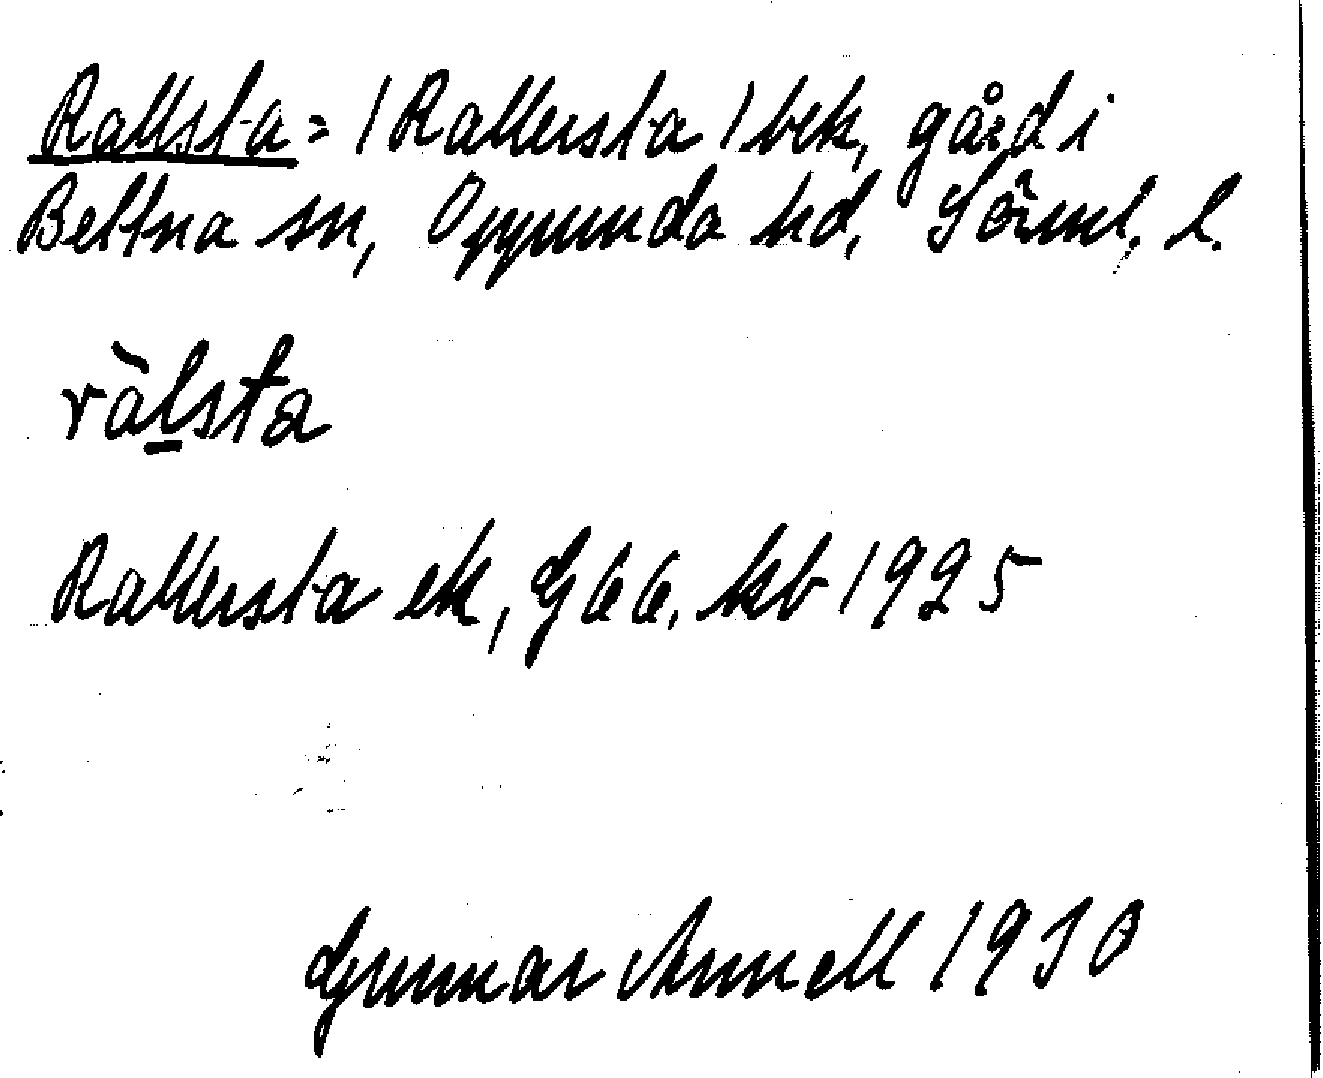 Rallsta = /Rallersta/ bek, gård i
Bettna sn, Oppunda hd, Sörml. l.
ràlsta
Rallersta ek, G 66. kb 1925
Gunnar Annell 1930